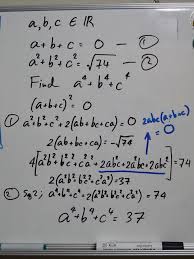 a, b, c ∈ ℝ
a + b + c = 0 — ①
a² + b² + c² = √74 — ②
Find a⁴ + b⁴ + c⁴
(a+b+c)² = 0
① a² + b² + c² + 2(ab + bc + ca) = 0
2(ab + bc + ca) = -√74
2abc(a+b+c)
4[a²b² + b²c² + c²a² + 2ab²c + 2abc² + 2a²bc] = 74
= 0
2(a²b² + b²c² + c²a²) = 37
② Sq; a⁴ + b⁴ + c⁴ + 2(a²b² + b²c² + c²a²) = 74
a⁴ + b⁴ + c⁴ = 37